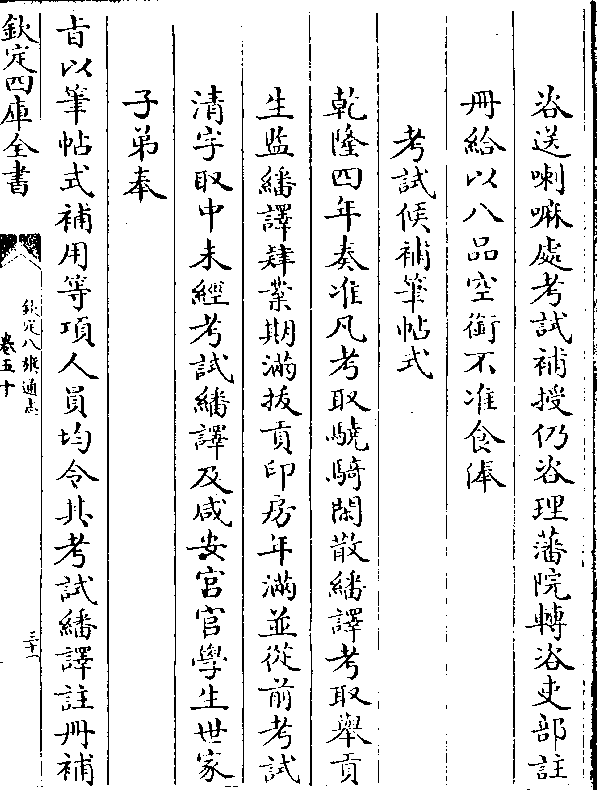 咨送喇嘛處考試補授仍咨理藩院轉咨吏部註
冊給以八品空銜不准食俸
考試候補筆帖式
乾隆四年奏准凡考取驍騎閑散繙譯考取舉貢
生監繙譯肄業期滿拔貢印房年滿並從前考試
清字取中未經考試繙譯及咸安宮官學生世家
子弟奉
旨以筆帖式補用等項人員均令其考試繙譯註冊補
欽定四庫全書
欽定八旗通志
卷五十
三十一